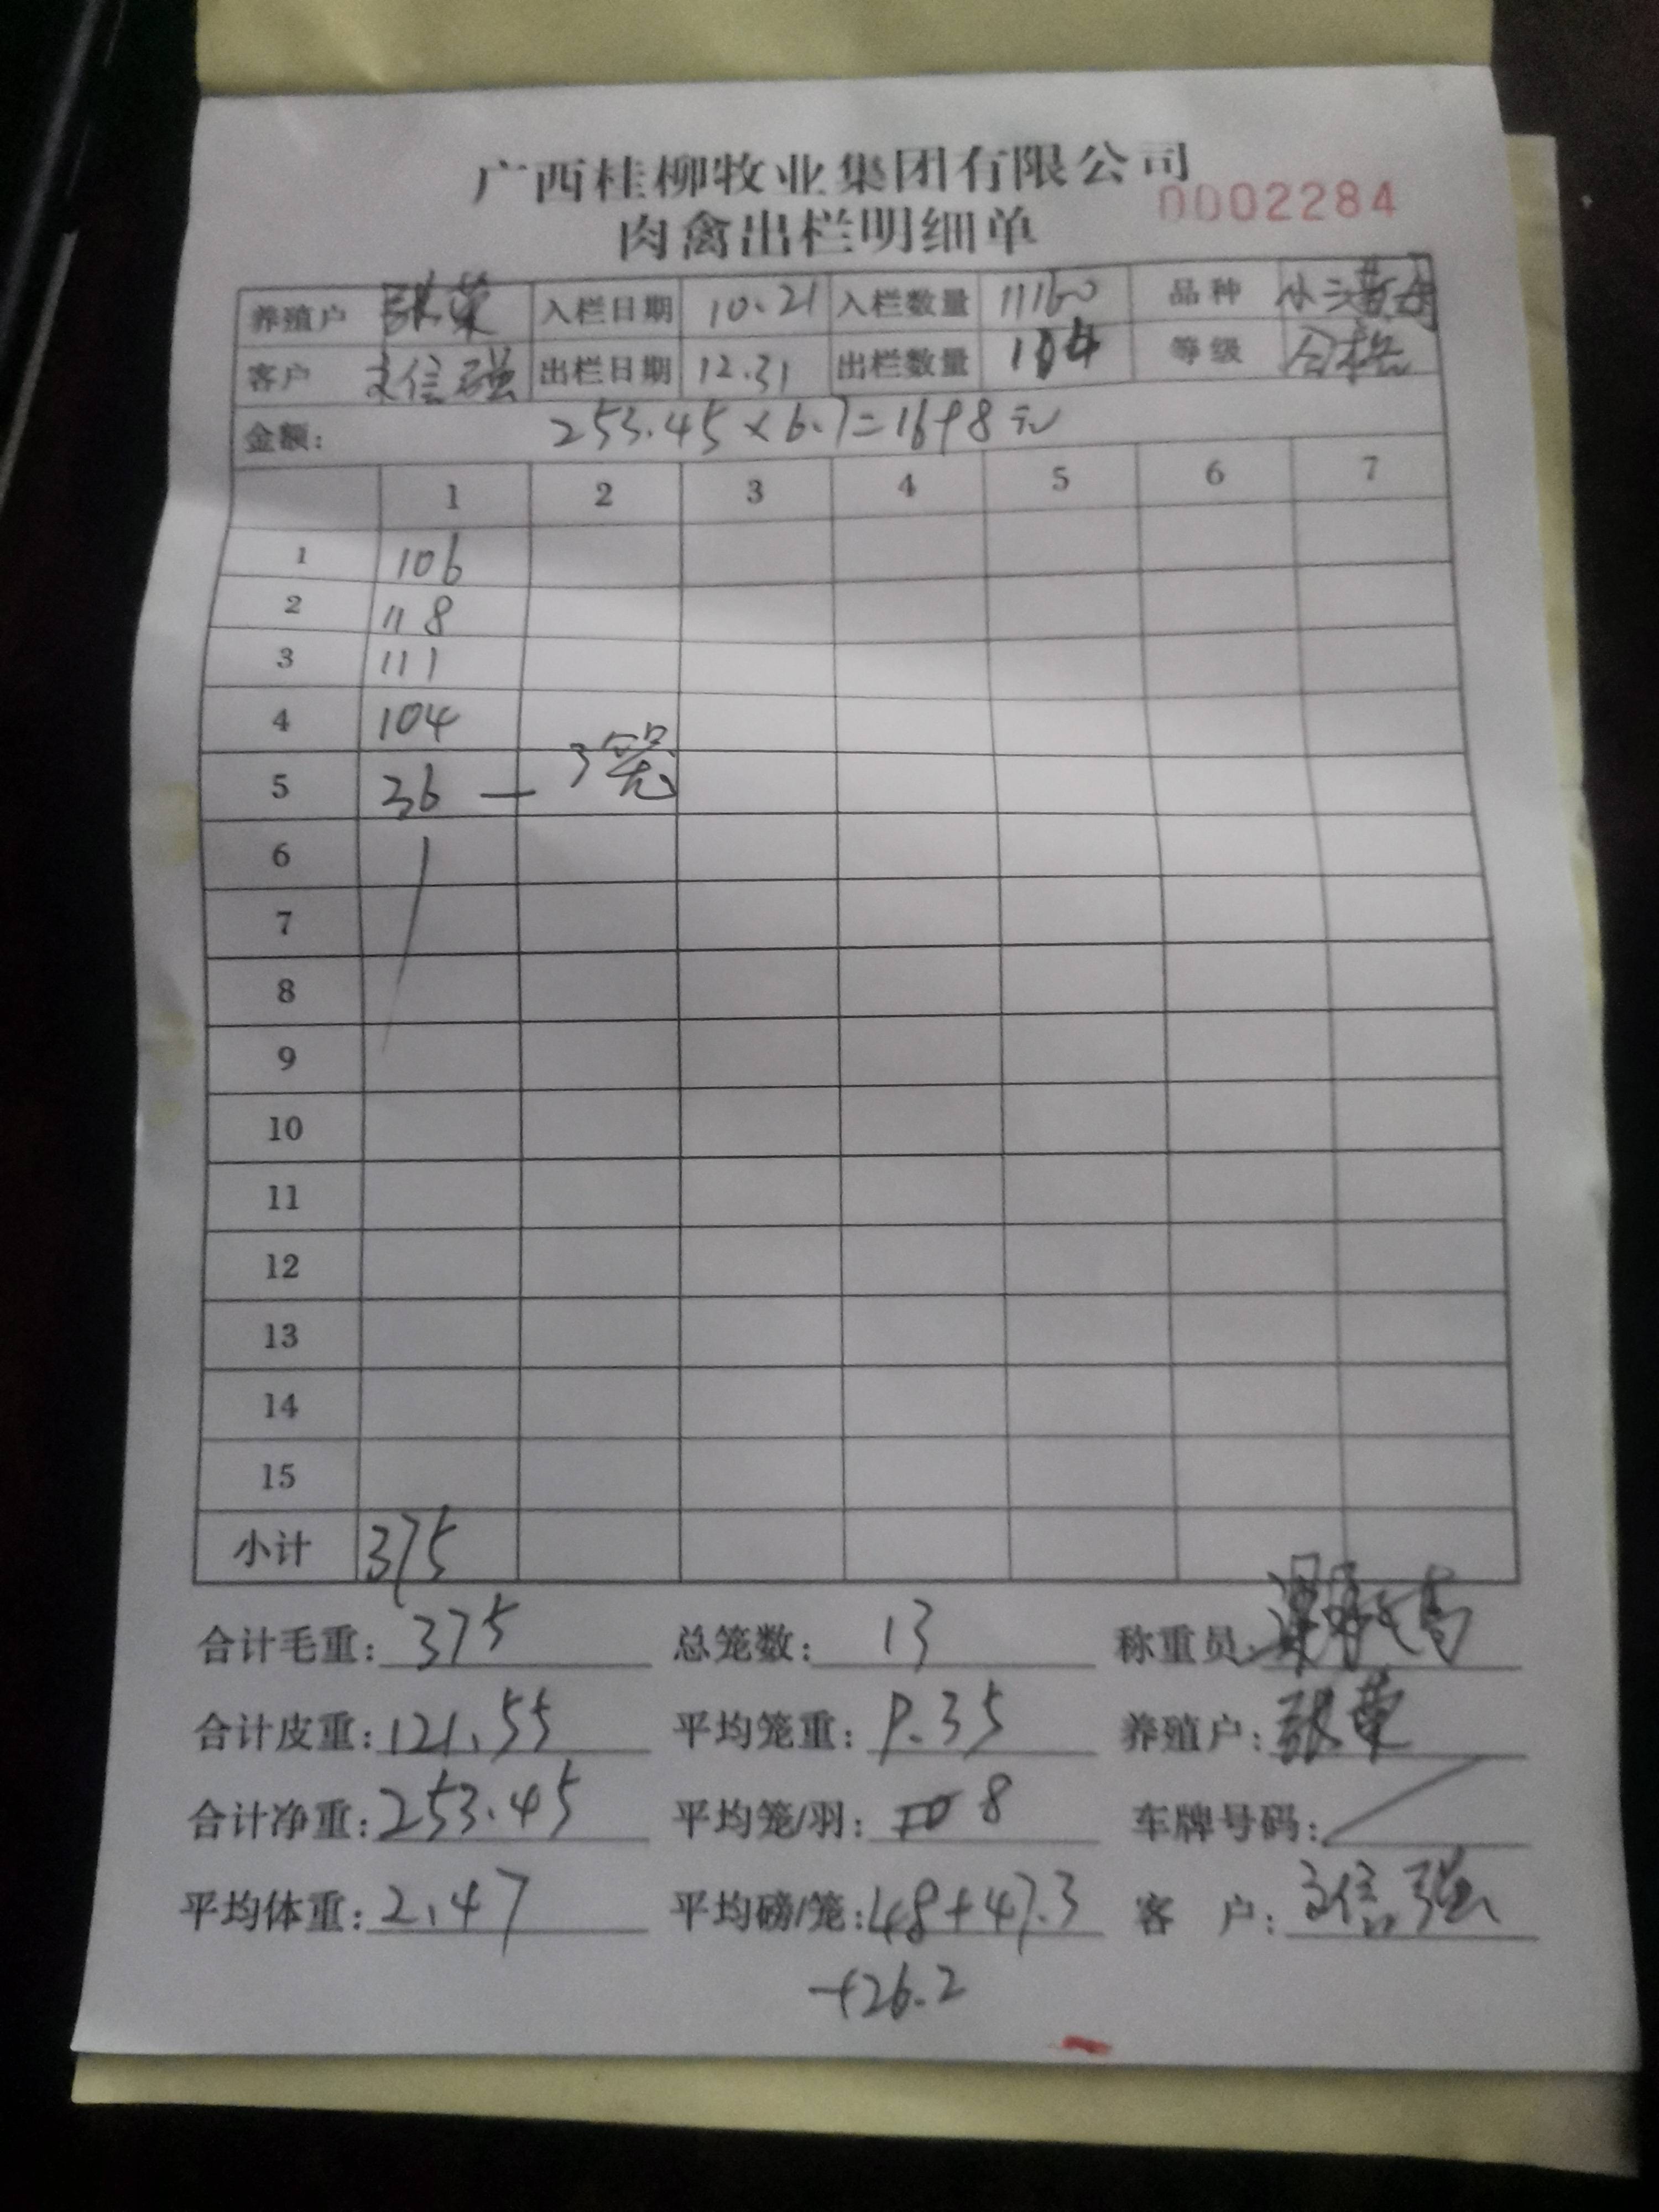 广西桂柳牧业集团有限公司
0002284
肉禽出栏明细单
养殖户 张荣 入栏日期 10.21 入栏数量 11160 品种
客户 文信强 出栏日期 12.31 出栏数量 104 等级 合格
金额: 253.45×6.7=1698元
1 2 3 4 5 6 7
1 106
2 118
3 111
4 104
5 36 — 3笼
6
7
8
9
10
11
12
13
14
15
小计 375
合计毛重: 375 总笼数: 13 称重员:
合计皮重: 121.55 平均笼重: 9.35 养殖户: 张荣
合计净重: 253.45 平均笼/羽: 8 车牌号码:
平均体重: 2.47 平均磅/笼: 48+47.3 客 户: 文信强
+26.2